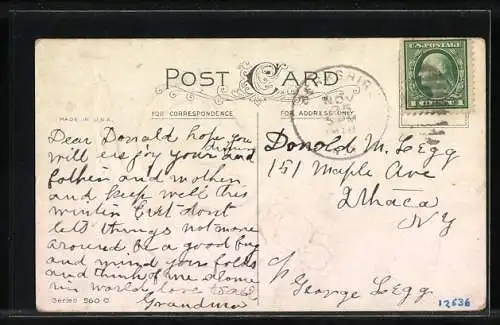 POST CARD
FOR CORRESPONDENCE
FOR ADDRESS ONLY
MADE IN U.S.A.
U.S. POSTAGE
NOV
Dear Donald hope you
will enjoy your
and
mother
and keep well this
winter but don't
let things not move
around be a good boy
and mind your folks
and think of me alone
in world love to all
Grandma
Donald M. Legg
151 Maple Ave
Ithaca
NY
c/o
George Legg
Series 560 C
12636